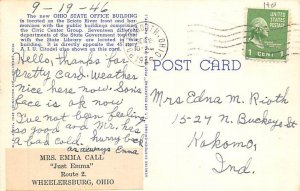 9-19-46
190
The new OHIO STATE OFFICE BUILDING
is located on the Scioto River front and borders with the several buildings comprising
the Civic Center Group. Seventeen different
departments of the State Government together
with the State Library are located in this
building. It is directly opposite the 45 story
A. I. U. Citadel also shown on this card.
Hello, thanks for
pretty Card. Weather
nice here now. Son's
face is ok now
I've not been feeling
so good and Mr. has
A bad cold. hurry back
as always Emma
MRS. EMMA CALL
"Just Emma"
Route 2.
WHEELERSBURG, OHIO
POST CARD
Mrs Edna M. Rioth
1527 N. Buckeye St
Kokomo,
Ind.
1 CENT 1